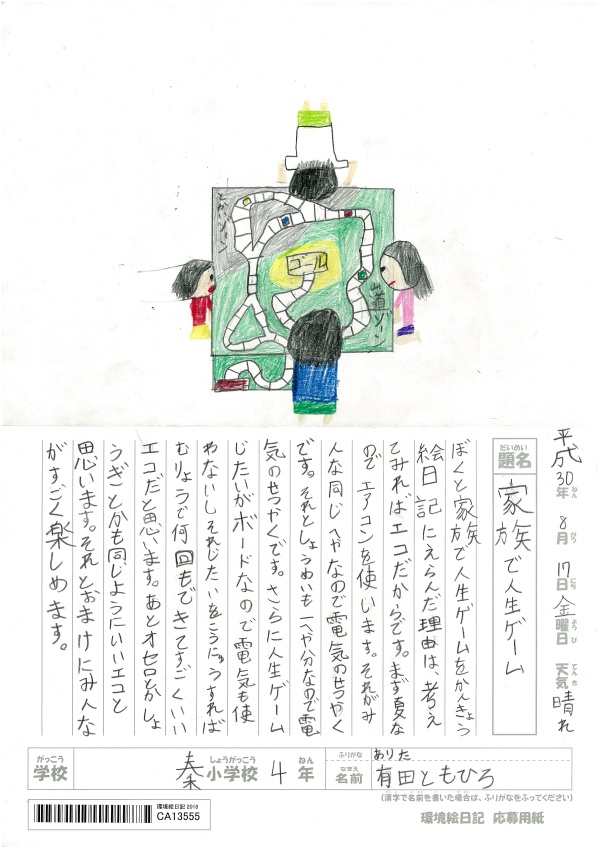 とかいゾーン
ゴール
山道ゾーン
平成30年 8月 17日 金曜日 天気 晴れ
ねん がつ にち ようび てんき
だいめい
題名
家族で人生ゲーム
ぼくと家族で人生ゲームをかんきょう
絵日記にえらんだ理由は、考え
てみればエコだからです。まず夏な
ので エアコンを使います。それがみ
んな同じへやなので電気のせつやく
です。それとしょうめいも一へや分なので電
気のせつやくです。さらに人生ゲーム
じたいがボードなので電気も使
わないしそれじたいをこうにゅうすれば
むりょうで何回もできてすごくいい
エコだと思います。あとオセロとかしょ
うぎとかも同じようにいいエコと
思います。それとおまけにみんな
がすごく楽しめます。
がっこう
学校
秦
しょうがっこう
小学校
4
ねん
年
ふりがな
ありた
なまえ
名前
有田ともひろ
(漢字で名前を書いた場合は、ふりがなをふってください)
環境絵日記 2018
CA13555
環境絵日記 応募用紙